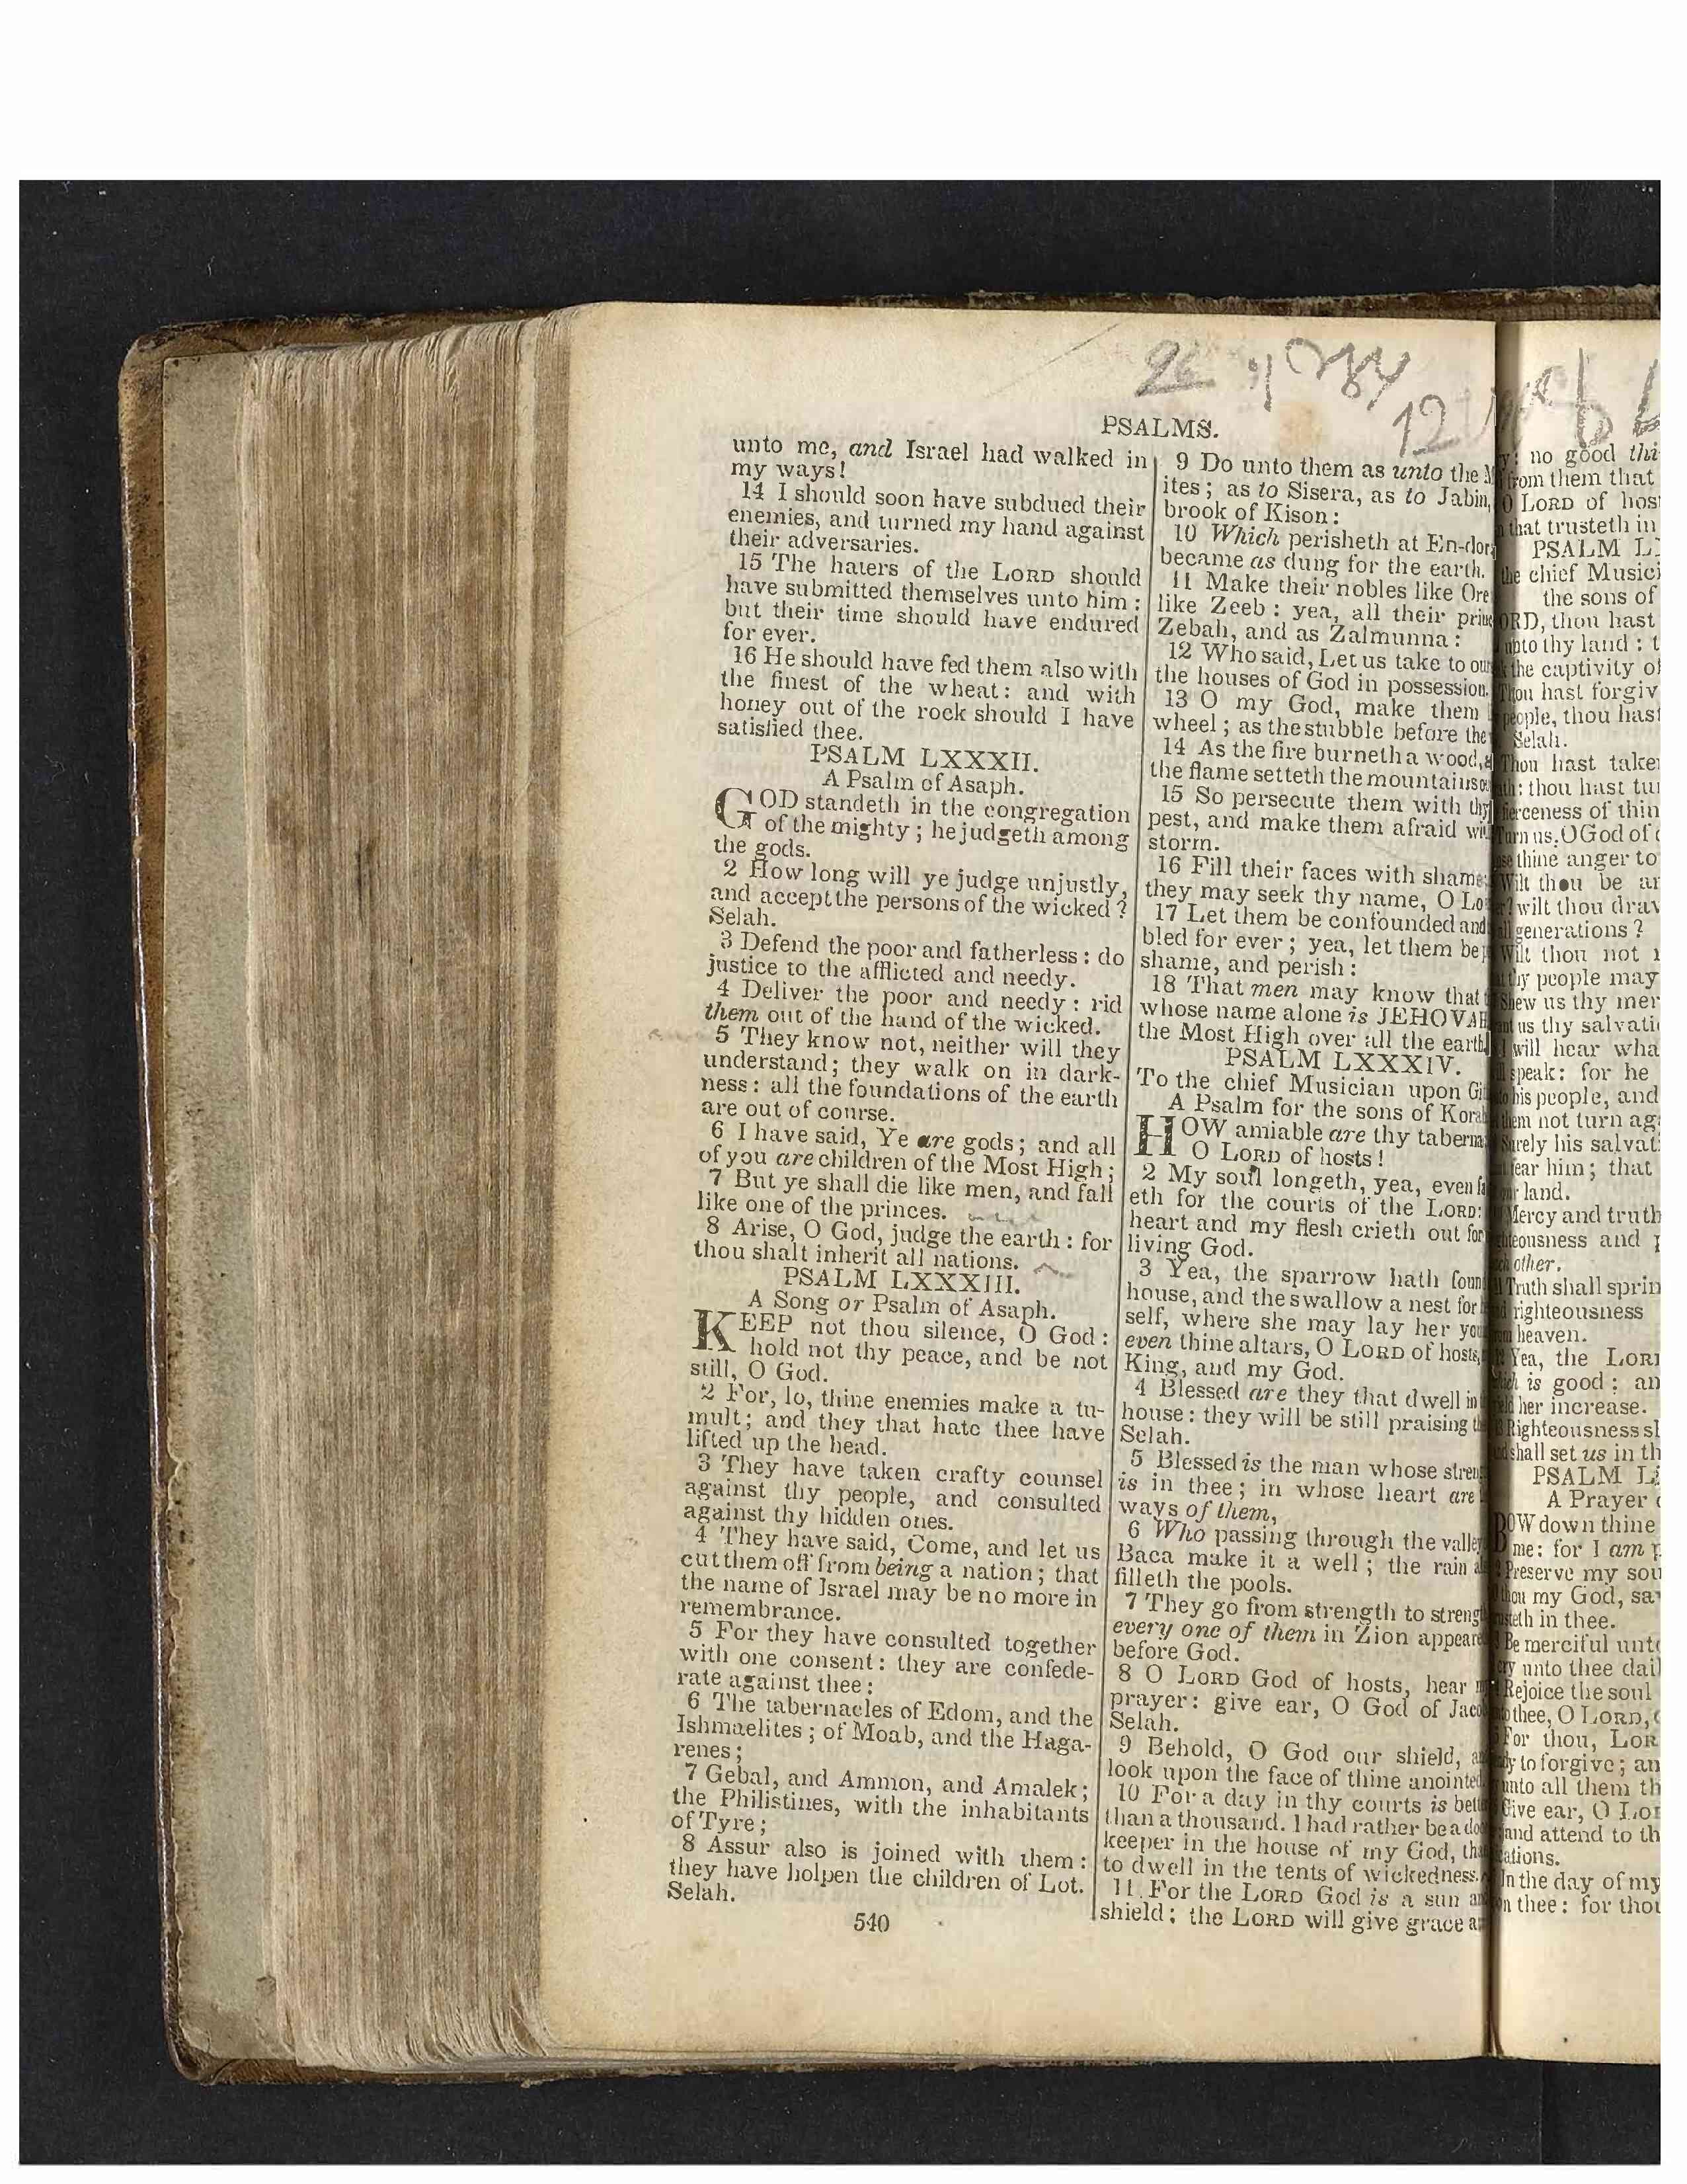 26
12
PSALMS.
unto me, and Israel had walked in
my ways!
14 I should soon have subdued their
enemies, and turned my hand against
their adversaries.
15 The haters of the LORD should
have submitted themselves unto him:
but their time should have endured
for ever.
16 He should have fed them also with
the finest of the wheat: and with
honey out of the rock should I have
satisfied thee.
PSALM LXXXII.
A Psalm of Asaph.
GOD standeth in the congregation
of the mighty; he judgeth among
the gods.
2 How long will ye judge unjustly,
and accept the persons of the wicked?
Selah.
3 Defend the poor and fatherless: do
justice to the afflicted and needy.
4 Deliver the poor and needy: rid
them out of the hand of the wicked.
5 They know not, neither will they
understand; they walk on in dark-
ness: all the foundations of the earth
are out of course.
6 I have said, Ye are gods; and all
of you are children of the Most High;
7 But ye shall die like men, and fall
like one of the princes.
8 Arise, O God, judge the earth: for
thou shalt inherit all nations.
PSALM LXXXIII.
A Song or Psalm of Asaph.
KEEP not thou silence, O God:
hold not thy peace, and be not
still, O God.
2 For, lo, thine enemies make a tu-
mult; and they that hate thee have
lifted up the head.
3 They have taken crafty counsel
against thy people, and consulted
against thy hidden ones.
4 They have said, Come, and let us
cut them off from being a nation; that
the name of Israel may be no more in
remembrance.
5 For they have consulted together
with one consent: they are confede-
rate against thee:
6 The tabernacles of Edom, and the
Ishmaelites; of Moab, and the Haga-
renes;
7 Gebal, and Ammon, and Amalek;
the Philistines, with the inhabitants
of Tyre;
8 Assur also is joined with them:
they have holpen the children of Lot.
Selah.
540
9 Do unto them as unto the M
ites; as to Sisera, as to Jabin,
brook of Kison:
10 Which perisheth at En-dor
became as dung for the earth.
11 Make their nobles like Ore
like Zeeb: yea, all their princ
Zebah, and as Zalmunna:
12 Who said, Let us take to our
the houses of God in possession.
13 O my God, make them
wheel; as the stubble before the
14 As the fire burneth a wood, a
the flame setteth the mountains o
15 So persecute them with thy
pest, and make them afraid wi
storm.
16 Fill their faces with shame
they may seek thy name, O Lo
17 Let them be confounded and
bled for ever; yea, let them be p
shame, and perish:
18 That men may know that t
whose name alone is JEHOVAH
the Most High over all the earth.
PSALM LXXXIV.
To the chief Musician upon Git
A Psalm for the sons of Korah
HOW amiable are thy taberna
O LORD of hosts!
2 My soul longeth, yea, even fa
eth for the courts of the LORD:
heart and my flesh crieth out for
living God.
3 Yea, the sparrow hath foun
house, and the swallow a nest for h
self, where she may lay her you
even thine altars, O LORD of hosts,
King, and my God.
4 Blessed are they that dwell in t
house: they will be still praising th
Selah.
5 Blessed is the man whose stren
is in thee; in whose heart are
ways of them,
6 Who passing through the valley
Baca make it a well; the rain a
filleth the pools.
7 They go from strength to streng
every one of them in Zion appear
before God.
8 O LORD God of hosts, hear m
prayer: give ear, O God of Jaco
Selah.
9 Behold, O God our shield, a
look upon the face of thine anointed.
10 For a day in thy courts is bett
than a thousand. I had rather be a doo
keeper in the house of my God, tha
to dwell in the tents of wickedness.
11 For the LORD God is a sun an
shield: the LORD will give grace a
y: no good thi
from them that
O LORD of host
that trusteth in
PSALM L
the chief Musici
the sons of
ORD, thou hast
unto thy land: t
the captivity of
Thou hast forgiv
people, thou hast
Selah.
Thou hast taken
th: thou hast tur
fierceness of thin
Turn us, O God of o
thine anger to
Wilt thou be an
wilt thou draw
all generations?
Wilt thou not r
thy people may
Shew us thy mer
us thy salvati
I will hear wha
speak: for he
his people, and
them not turn aga
Surely his salvat
fear him; that
land.
Mercy and truth
teousness and p
other.
Truth shall sprin
righteousness
heaven.
Yea, the LOR
is good: an
her increase.
Righteousness sl
shall set us in th
PSALM L
A Prayer o
BOW down thine
me: for I am p
Preserve my sou
thou my God, sav
teth in thee.
Be merciful unto
cry unto thee dail
Rejoice the soul
thee, O LORD,
For thou, LOR
to forgive; an
unto all them th
Give ear, O LOR
and attend to th
ations.
In the day of my
thee: for thou